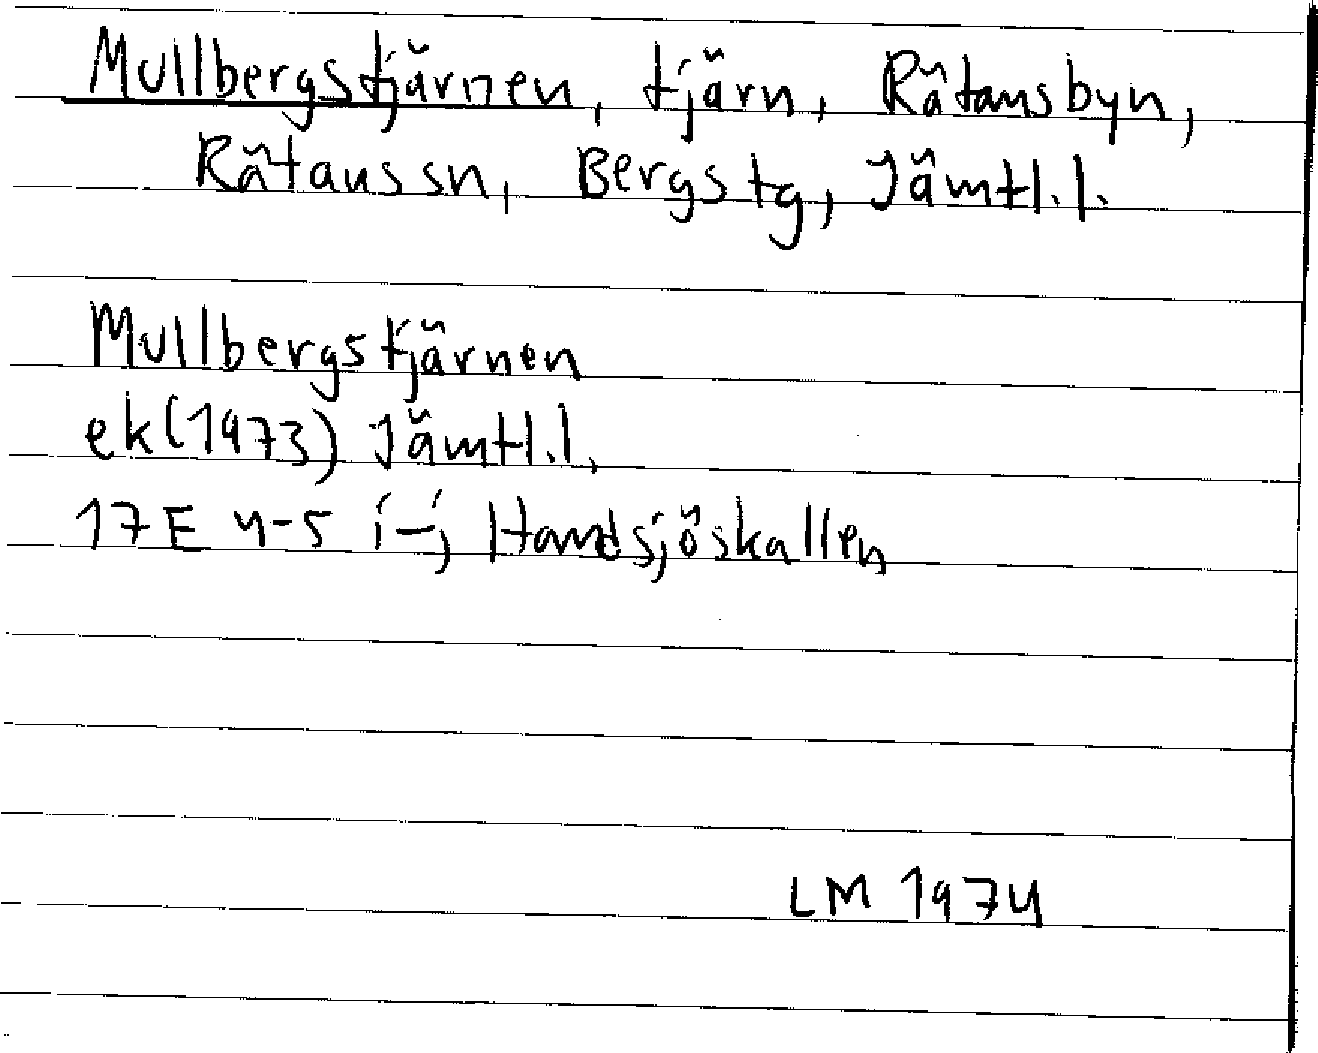 Mullbergstjärnen, tjärn, Rätansbyn,
Rätans sn, Bergs tg, Jämtl. l.
Mullbergstjärnen
ek (1973) Jämtl. l.
17 E 4-5 i-j Handsjöskallen
LM 1974